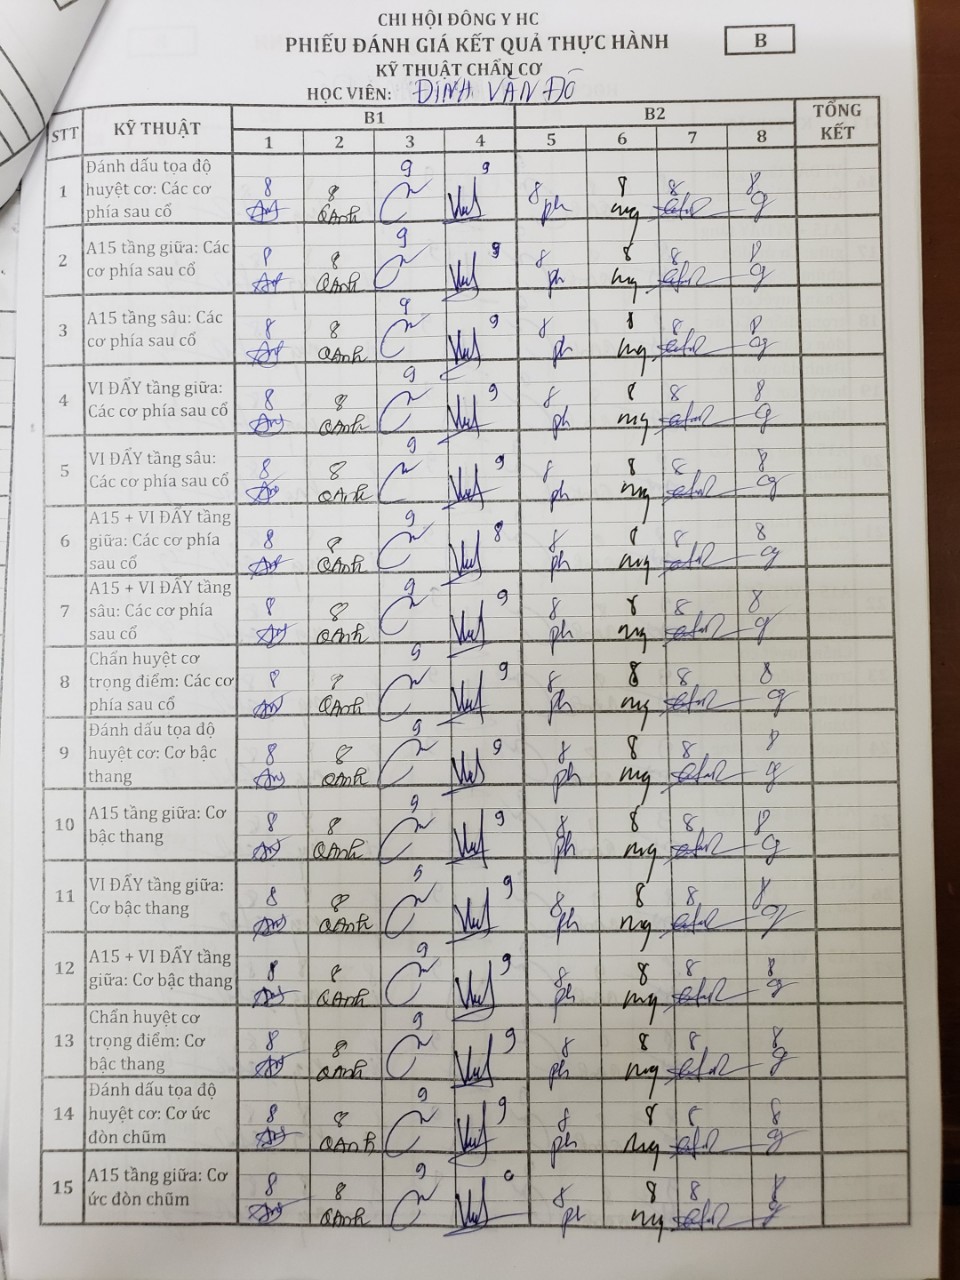 CHI HỘI ĐÔNG Y HC
PHIẾU ĐÁNH GIÁ KẾT QUẢ THỰC HÀNH
B
KỸ THUẬT CHẨN CƠ
HỌC VIÊN: ĐINH VĂN ĐÔ
STT KỸ THUẬT B1 B2 TỔNG KẾT
1 2 3 4 5 6 7 8
1 Đánh dấu tọa độ huyệt cơ: Các cơ phía sau cổ 8 8 9 9 8 8 8 8
QAnh ph mg
2 A15 tầng giữa: Các cơ phía sau cổ 8 8 9 9 8 8 8 8
QAnh ph mg
3 A15 tầng sâu: Các cơ phía sau cổ 8 8 9 9 8 8 8 8
QAnh ph mg
4 VI ĐẨY tầng giữa: Các cơ phía sau cổ 8 8 9 9 8 8 8 8
QAnh ph mg
5 VI ĐẨY tầng sâu: Các cơ phía sau cổ 8 8 9 9 8 8 8 8
QAnh ph mg
6 A15 + VI ĐẨY tầng giữa: Các cơ phía sau cổ 8 8 9 8 8 8 8 8
QAnh ph mg
7 A15 + VI ĐẨY tầng sâu: Các cơ phía sau cổ 8 8 9 9 8 8 8 8
QAnh ph mg
8 Chẩn huyệt cơ trọng điểm: Các cơ phía sau cổ 8 9 9 8 8 8 8
QAnh ph mg
9 Đánh dấu tọa độ huyệt cơ: Cơ bậc thang 8 8 9 9 8 8 8 8
QAnh ph mg
10 A15 tầng giữa: Cơ bậc thang 8 8 9 9 8 8 8 8
QAnh ph mg
11 VI ĐẨY tầng giữa: Cơ bậc thang 8 8 9 8 8 8 8
QAnh ph mg
12 A15 + VI ĐẨY tầng giữa: Cơ bậc thang 8 8 9 9 8 8 8 8
QAnh ph mg
13 Chẩn huyệt cơ trọng điểm: Cơ bậc thang 8 8 9 9 8 8 8 8
QAnh ph mg
14 Đánh dấu tọa độ huyệt cơ: Cơ ức đòn chũm 8 8 9 9 8 8 8 8
QAnh ph mg
15 A15 tầng giữa: Cơ ức đòn chũm 8 8 9 8 8 8 8
QAnh ph mg